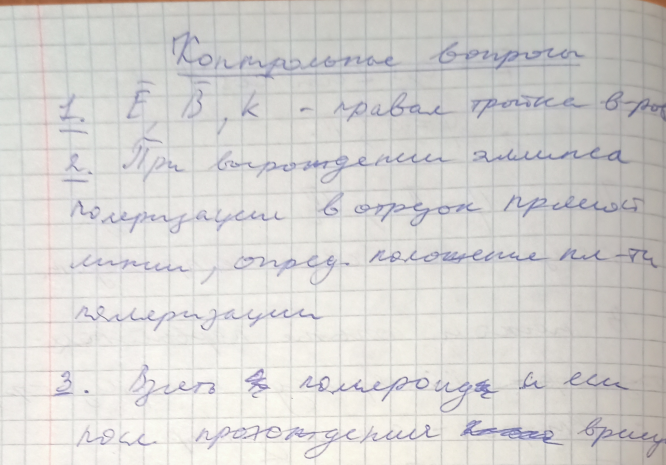 Контрольные вопросы
1. E̅, B̅, k - правая тройка в-ро
2. При вырождении эллипса
поляризации в отрезок прямой
линии, опред. положение пл-ти
поляризации
3. Взять поляроид и если
после прохождения